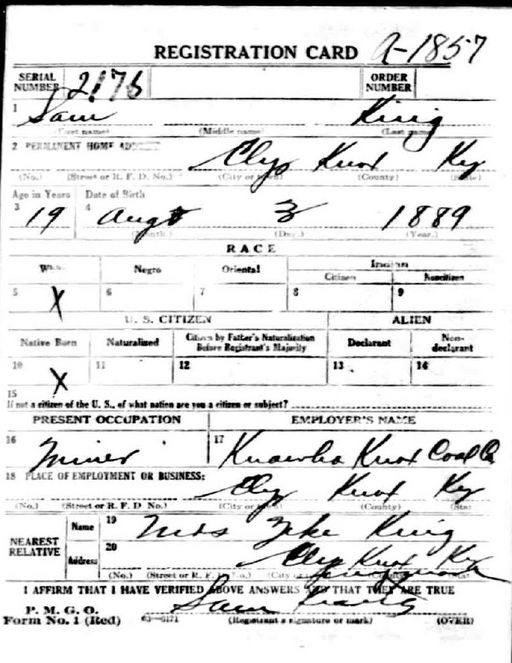 REGISTRATION CARD A-1857
SERIAL NUMBER 2176 ORDER NUMBER
1 Sam King
(First name) (Middle name) (Last name)
2 PERMANENT HOME ADDRESS
Clyo Knox Ky
(No.) (Street or R. F. D. No.) (City or town) (County) (State)
Age in Years Date of Birth
3 19 4 Augt 3 1889
(Month.) (Day.) (Year.)
RACE
White Negro Oriental Indian
Citizen Noncitizen
5 X 6 7 8 9
U. S. CITIZEN ALIEN
Native Born Naturalized Citizen by Father's Naturalization Before Registrant's Majority Declarant Non-declarant
10 X 11 12 13 14
15
If not a citizen of the U. S., of what nation are you a citizen or subject?
PRESENT OCCUPATION EMPLOYER'S NAME
16 Miner 17 Knox Coal Co
18 PLACE OF EMPLOYMENT OR BUSINESS:
Knox Ky
(No.) (Street or R. F. D. No.) (City or town) (County) (State)
NEAREST RELATIVE
Name 19 Mrs Zeke King
Address 20 Knox Ky
(No.) (Street or R. F. D. No.) (City or town) (County) (State)
I AFFIRM THAT I HAVE VERIFIED ABOVE ANSWERS AND THAT THEY ARE TRUE
P. M. G. O.
Form No. 1 (Red) 03-6171 Sam (Registrant's signature or mark) (OVER)